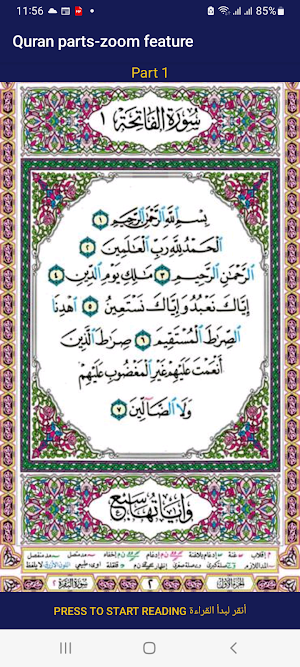 11:56
85%
Quran parts-zoom feature
Part 1
سُورَةُ الفَاتِحَة ١
بِسْمِ اللَّهِ الرَّحْمَٰنِ الرَّحِيمِ ١
الْحَمْدُ لِلَّهِ رَبِّ الْعَالَمِينَ ٢
الرَّحْمَٰنِ الرَّحِيمِ ٣ مَالِكِ يَوْمِ الدِّينِ ٤
إِيَّاكَ نَعْبُدُ وَإِيَّاكَ نَسْتَعِينُ ٥ اهْدِنَا
الصِّرَاطَ الْمُسْتَقِيمَ ٦ صِرَاطَ الَّذِينَ
أَنْعَمْتَ عَلَيْهِمْ غَيْرِ الْمَغْضُوبِ عَلَيْهِمْ
وَلَا الضَّالِّينَ ٧
وآياتها سبع
الجزء الأول ٢ سورة البقرة ٢
PRESS TO START READING أنقر لبدأ القراءة